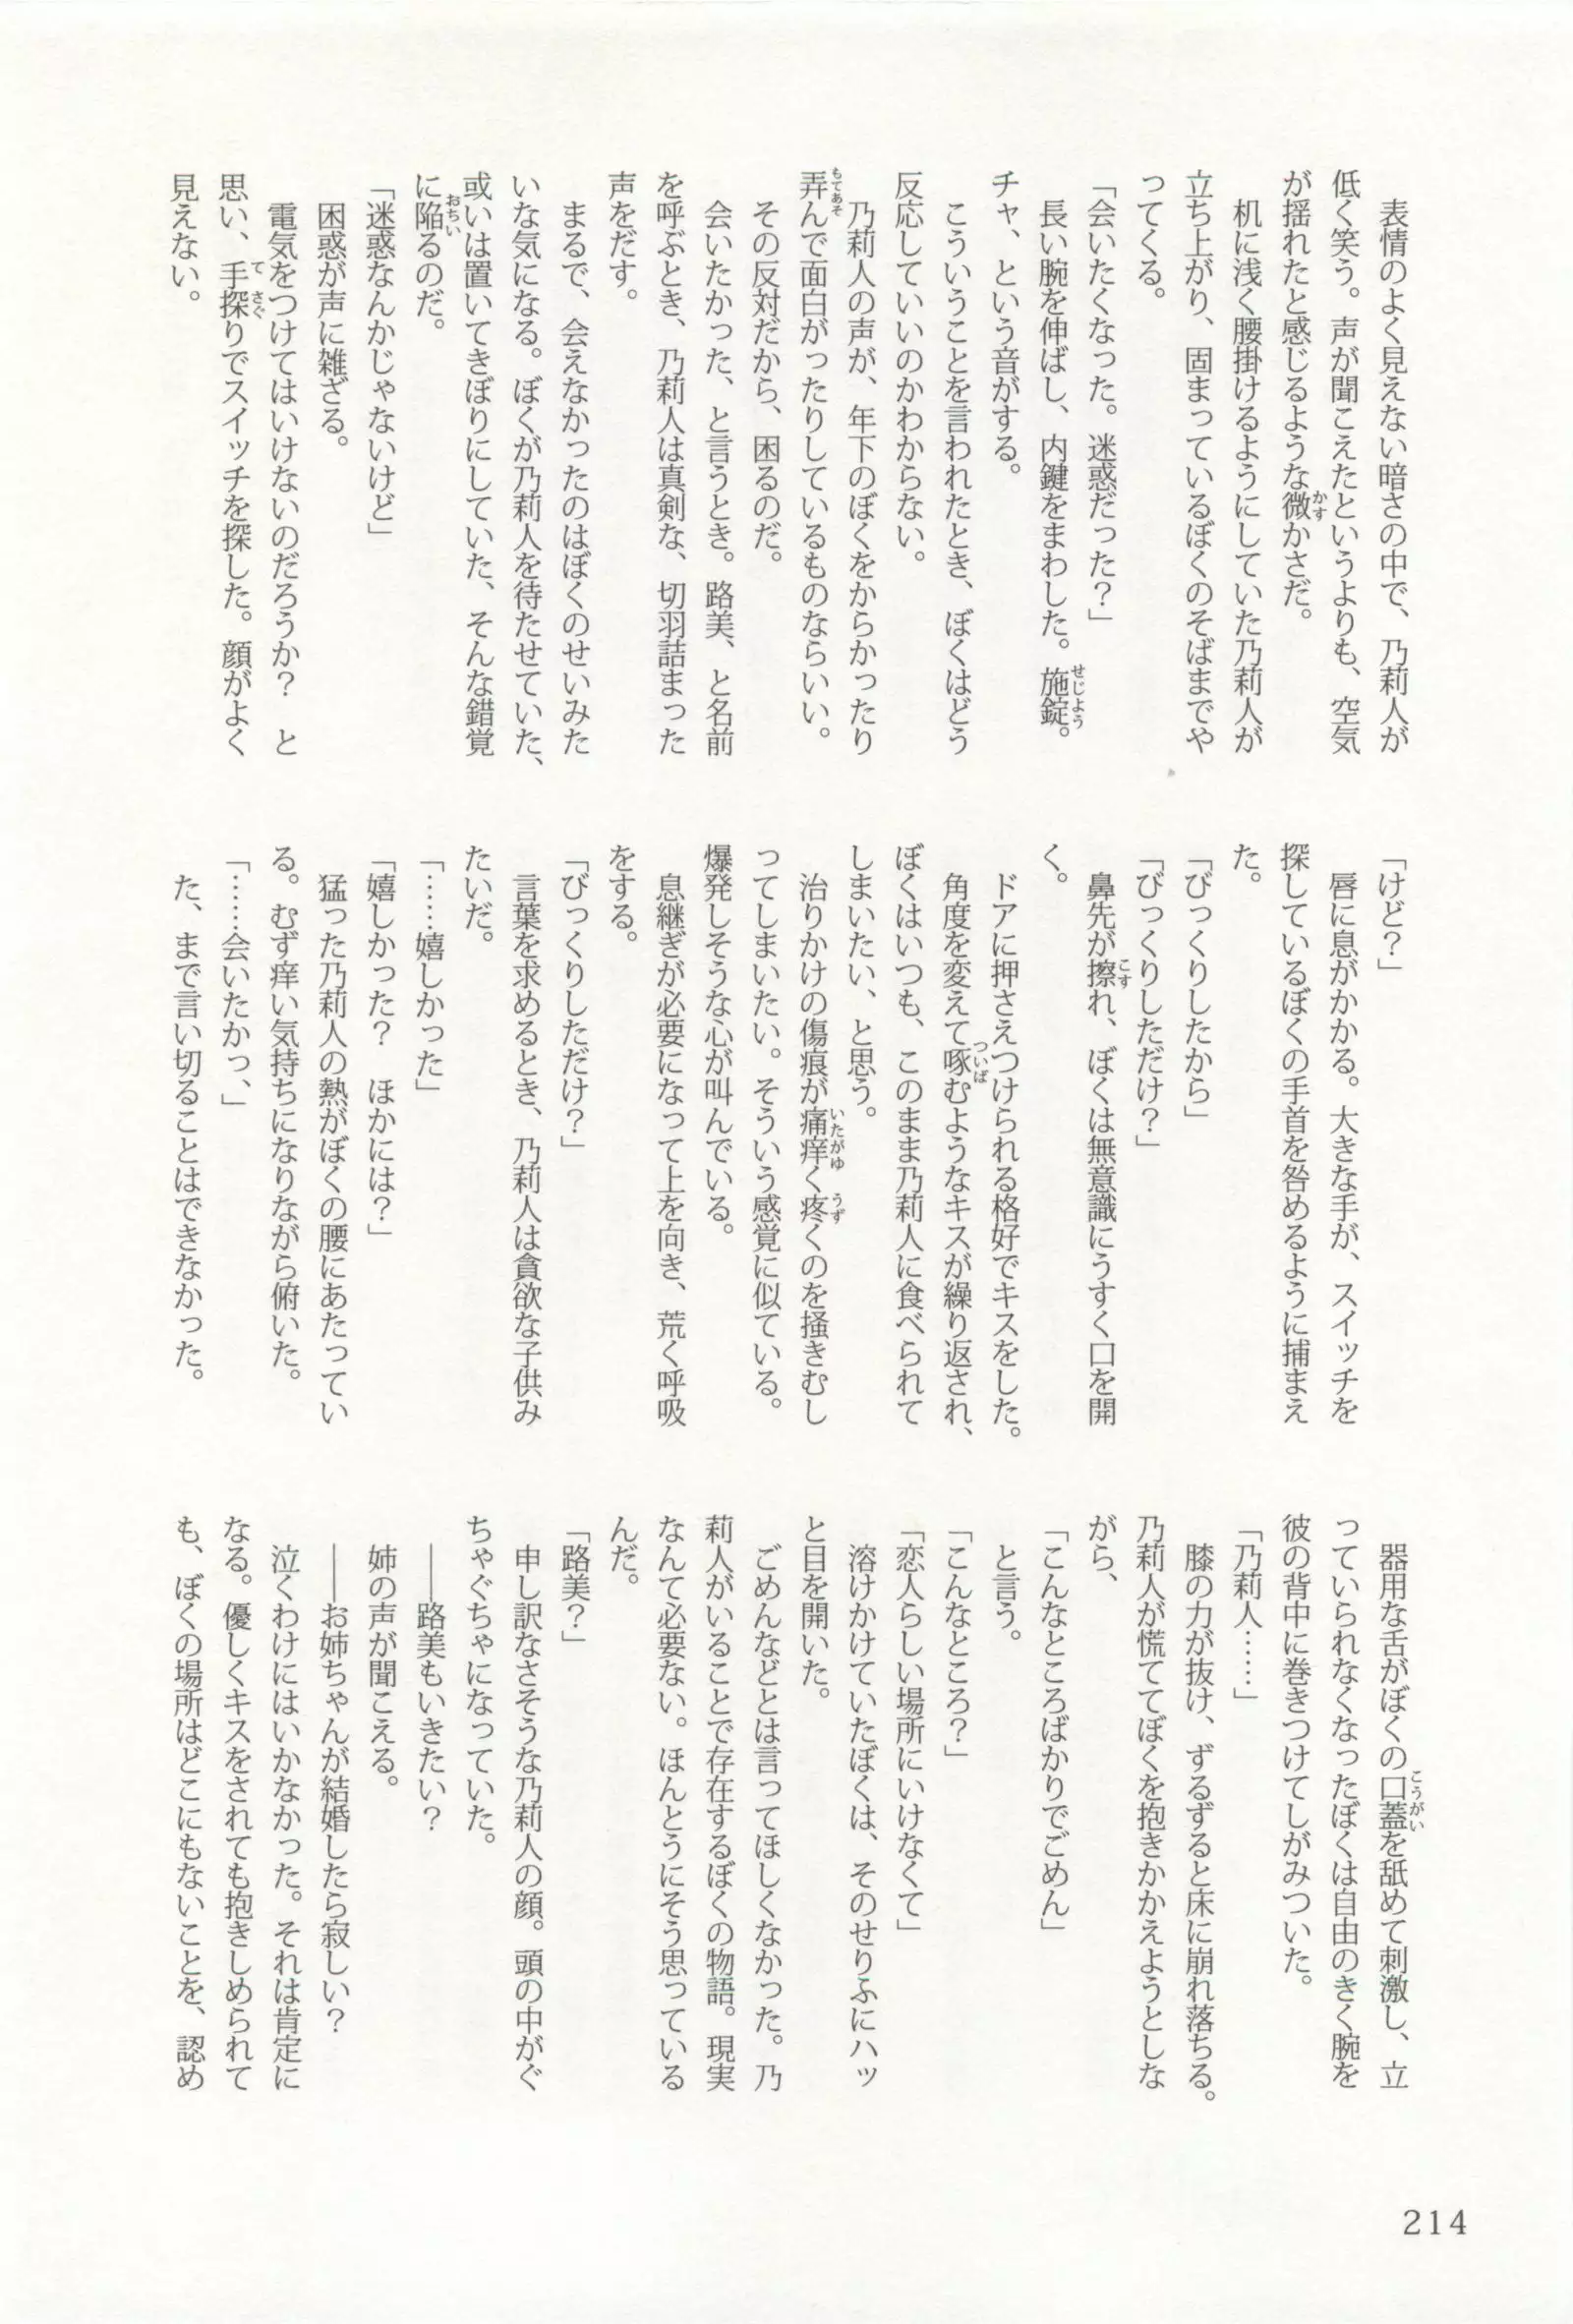 表情のよく見えない暗さの中で、乃莉人が
低く笑う。声が聞こえたというよりも、空気
が揺れたと感じるような微かさだ。
机に浅く腰掛けるようにしていた乃莉人が
立ち上がり、固まっているぼくのそばまでや
ってくる。
「会いたくなった。迷惑だった？」
長い腕を伸ばし、内鍵をまわした。施錠。
チャ、という音がする。
こういうことを言われたとき、ぼくはどう
反応していいのかわからない。
乃莉人の声が、年下のぼくをからかったり
弄んで面白がったりしているものならいい。
その反対だから、困るのだ。
会いたかった、と言うとき。路美、と名前
を呼ぶとき、乃莉人は真剣な、切羽詰まった
声をだす。
まるで、会えなかったのはぼくのせいみた
いな気になる。ぼくが乃莉人を待たせていた、
或いは置いてきぼりにしていた、そんな錯覚
に陥るのだ。
「迷惑なんかじゃないけど」
困惑が声に雑ざる。
電気をつけてはいけないのだろうか？　と
思い、手探りでスイッチを探した。顔がよく
見えない。
「けど？」
唇に息がかかる。大きな手が、スイッチを
探しているぼくの手首を咎めるように捕まえ
た。
「びっくりしたから」
「びっくりしただけ？」
鼻先が擦れ、ぼくは無意識にうすく口を開
く。
ドアに押さえつけられる格好でキスをした。
角度を変えて啄むようなキスが繰り返され、
ぼくはいつも、このまま乃莉人に食べられて
しまいたい、と思う。
治りかけの傷痕が痛痒く疼くのを掻きむし
ってしまいたい。そういう感覚に似ている。
爆発しそうな心が叫んでいる。
息継ぎが必要になって上を向き、荒く呼吸
をする。
「びっくりしただけ？」
言葉を求めるとき、乃莉人は貪欲な子供み
たいだ。
「……嬉しかった」
「嬉しかった？　ほかには？」
猛った乃莉人の熱がぼくの腰にあたってい
る。むず痒い気持ちになりながら俯いた。
「……会いたかっ、」
た、まで言い切ることはできなかった。
器用な舌がぼくの口蓋を舐めて刺激し、立
っていられなくなったぼくは自由のきく腕を
彼の背中に巻きつけてしがみついた。
「乃莉人……」
膝の力が抜け、ずるずると床に崩れ落ちる。
乃莉人が慌ててぼくを抱きかかえようとしな
がら、
「こんなところばかりでごめん」
と言う。
「こんなところ？」
「恋人らしい場所にいけなくて」
溶けかけていたぼくは、そのせりふにハッ
と目を開いた。
ごめんなどとは言ってほしくなかった。乃
莉人がいることで存在するぼくの物語。現実
なんて必要ない。ほんとうにそう思っている
んだ。
「路美？」
申し訳なさそうな乃莉人の顔。頭の中がぐ
ちゃぐちゃになっていた。
――路美もいきたい？
姉の声が聞こえる。
――お姉ちゃんが結婚したら寂しい？
泣くわけにはいかなかった。それは肯定に
なる。優しくキスをされても抱きしめられて
も、ぼくの場所はどこにもないことを、認め
214